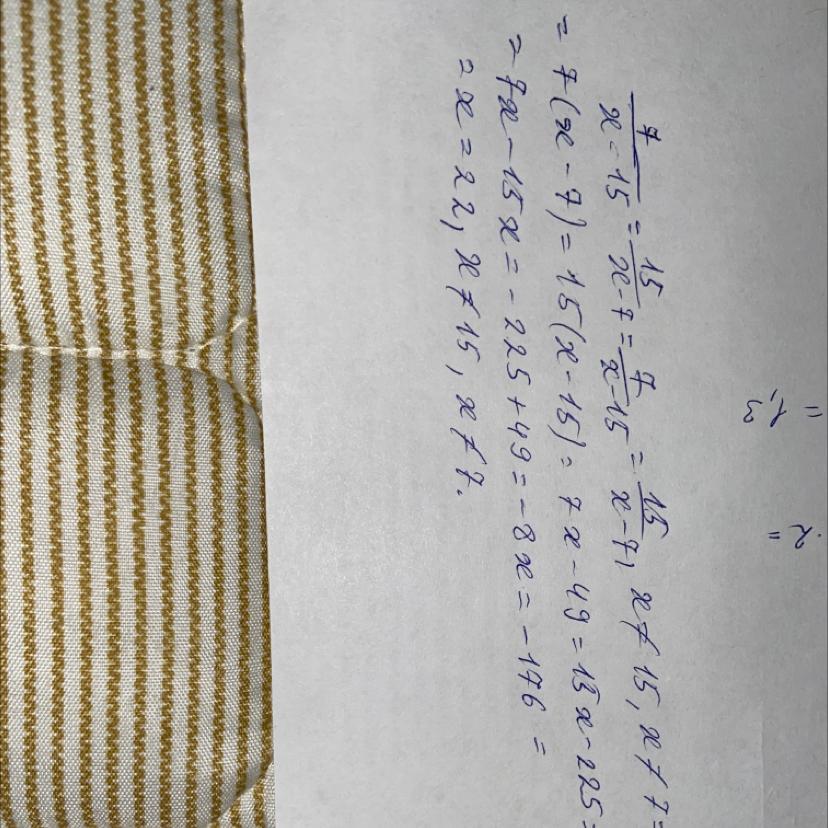 7/(x-15) = 15/(x-7) = 7/(x-15) = 15/(x-7), x≠15, x≠7=
= 7(x-7) = 15(x-15) = 7x-49 = 15x-225=
= 7x-15x = -225+49 = -8x = -176 =
= x = 22, x≠15, x≠7.
= 1,3
2 =